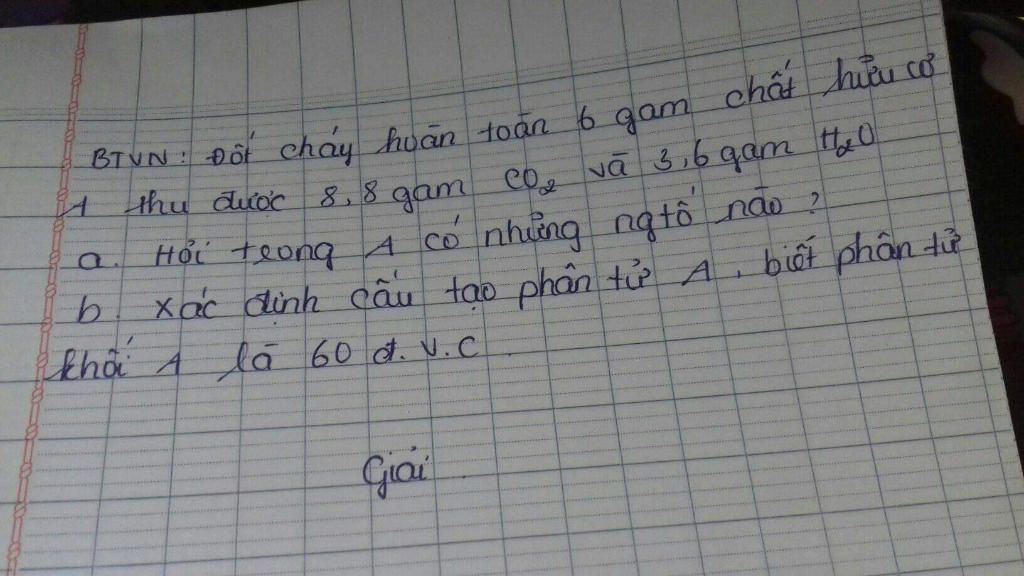 BTVN: Đốt cháy hoàn toàn 6 gam chất hữu cơ
A thu được 8,8 gam CO₂ và 3,6 gam H₂O
a. Hỏi trong A có những ngtố nào?
b. Xác định cấu tạo phân tử A, biết phân tử
khối A là 60 đ.v.C
Giải